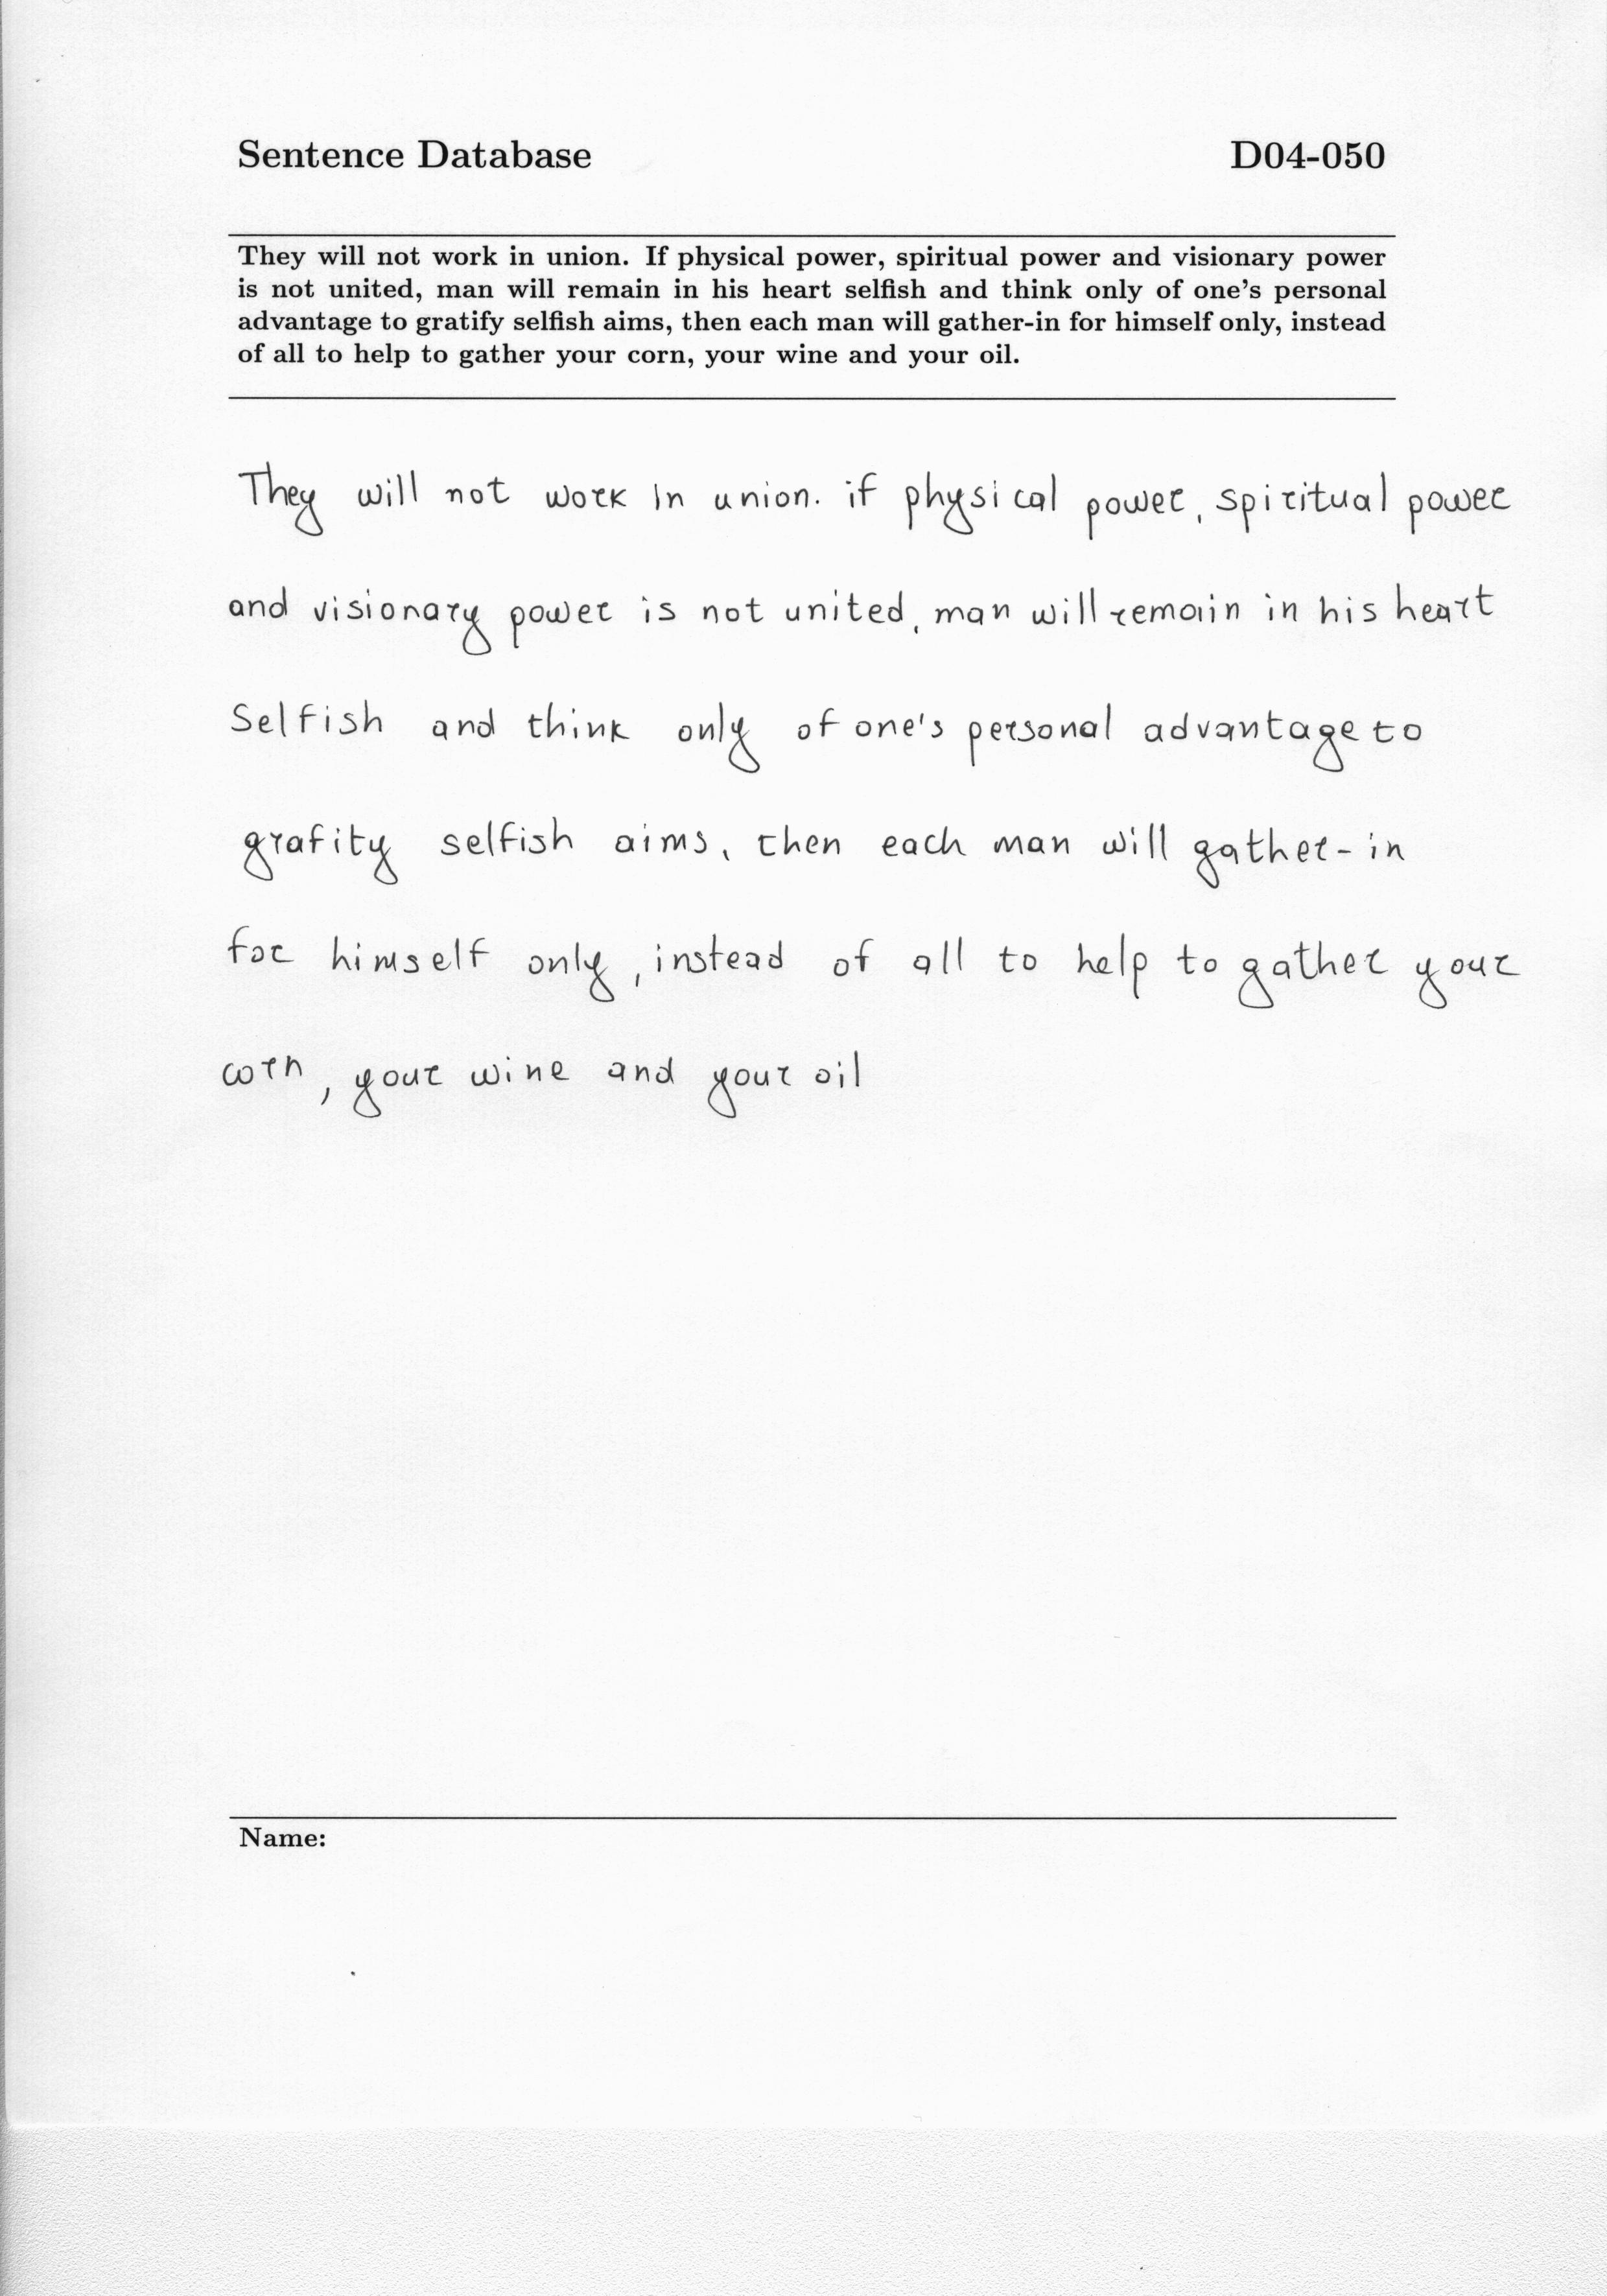 Sentence Database D04-050
They will not work in union. If physical power, spiritual power and visionary power
is not united, man will remain in his heart selfish and think only of one's personal
advantage to gratify selfish aims, then each man will gather-in for himself only, instead
of all to help to gather your corn, your wine and your oil.
They will not work in union. if physical power, spiritual power
and visionary power is not united, man will remain in his heart
Selfish and think only of one's personal advantage to
grafity selfish aims, then each man will gather-in
for himself only, instead of all to help to gather your
corn, your wine and your oil
Name: